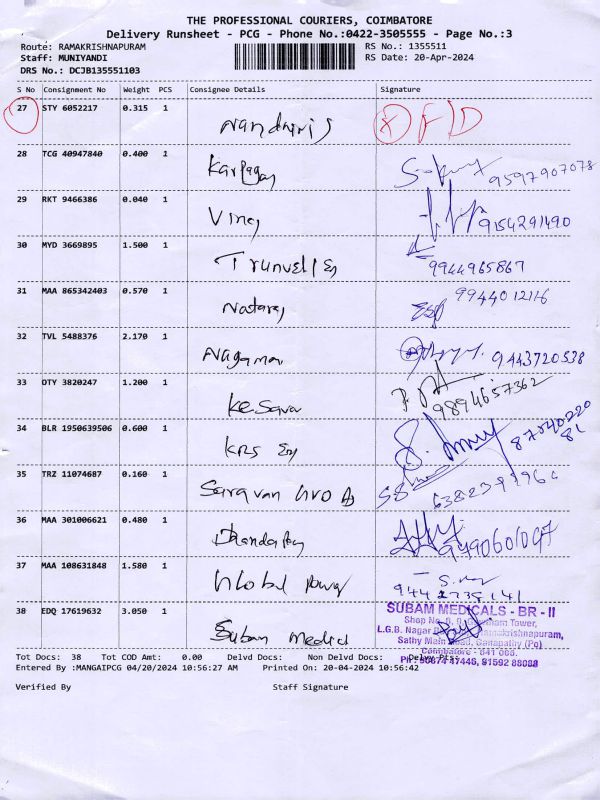 THE PROFESSIONAL COURIERS, COIMBATORE
Delivery Runsheet - PCG - Phone No.:0422-3505555 - Page No.:3
Route: RAMAKRISHNAPURAM RS No.: 1355511
Staff: MUNIYANDI RS Date: 20-Apr-2024
DRS No.: DCJB135551103
S No Consignment No Weight PCS Consignee Details Signature
27 STY 6052217 0.315 1
28 TCG 40947840 0.400 1 Karpagay 9597907078
29 RKT 9466386 0.040 1 Vinay 9154291490
30 MYD 3669895 1.500 1 9944965867
31 MAA 865342403 0.570 1 Nataraj 9944012116
32 TVL 5488376 2.170 1 Nagaman 9443720538
33 OTY 3820247 1.200 1 Kesava 9894657362
34 BLR 1950639506 0.600 1 KRS 8704022081
35 TRZ 11074687 0.160 1 Saravan
36 MAA 301006621 0.480 1
37 MAA 108631848 1.580 1 Global Power
38 EDQ 17619632 3.050 1 Subam Medical
SUBAM MEDICALS - BR - II
Shop No. Gowtham Tower,
L.G.B. Nagar Ramakrishnapuram,
Sathy Main Road, Ganapathy (Po)
Coimbatore - 641 006.
Tot Docs: 38 Tot COD Amt: 0.00 Delvd Docs: Non Delvd Docs: Delvy Pts:
Entered By :MANGAIPCG 04/20/2024 10:56:27 AM Printed On: 20-04-2024 10:56:42
Verified By Staff Signature